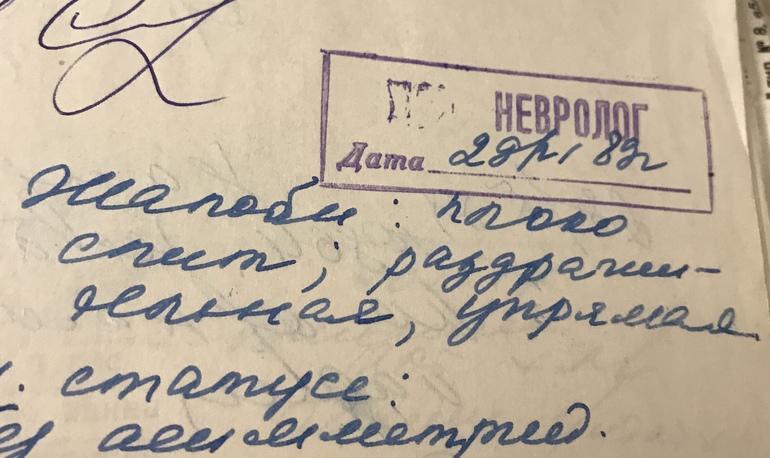 НЕВРОЛОГ
Дата
Жалобы: плохо
спит; раздражи-
тельная, упрямая
статусе:
асимметрий.